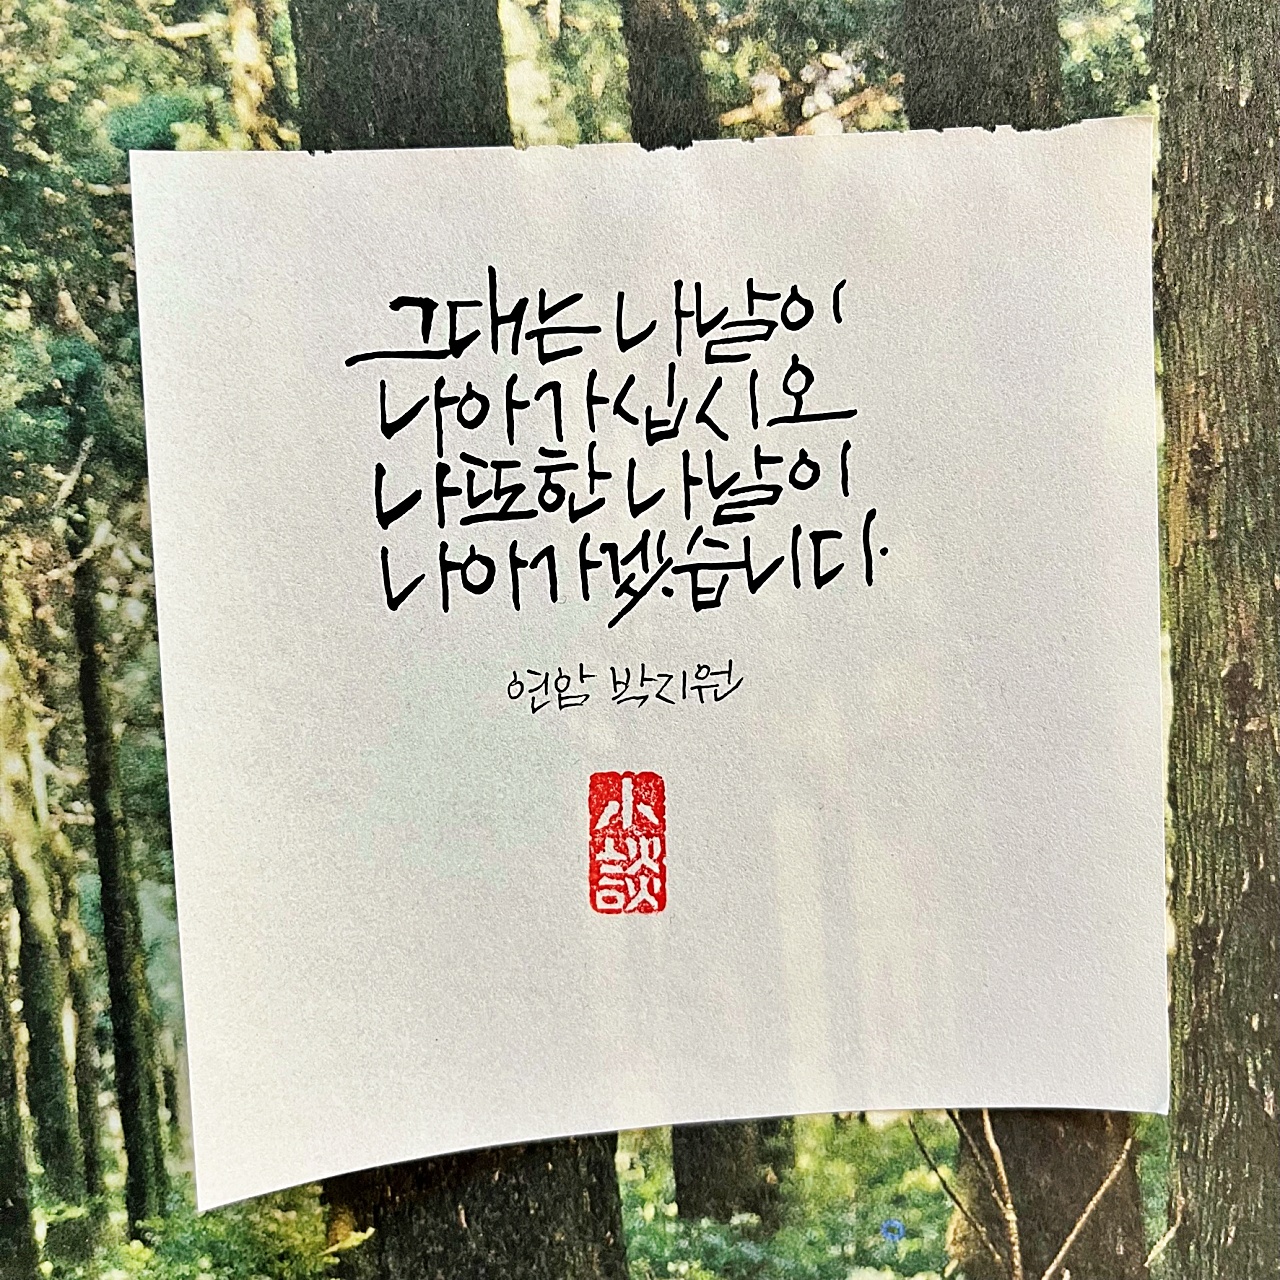 그대는 나날이
나아가십시오
나 또한 나날이
나아가겠습니다.
연암 박지원
小
談